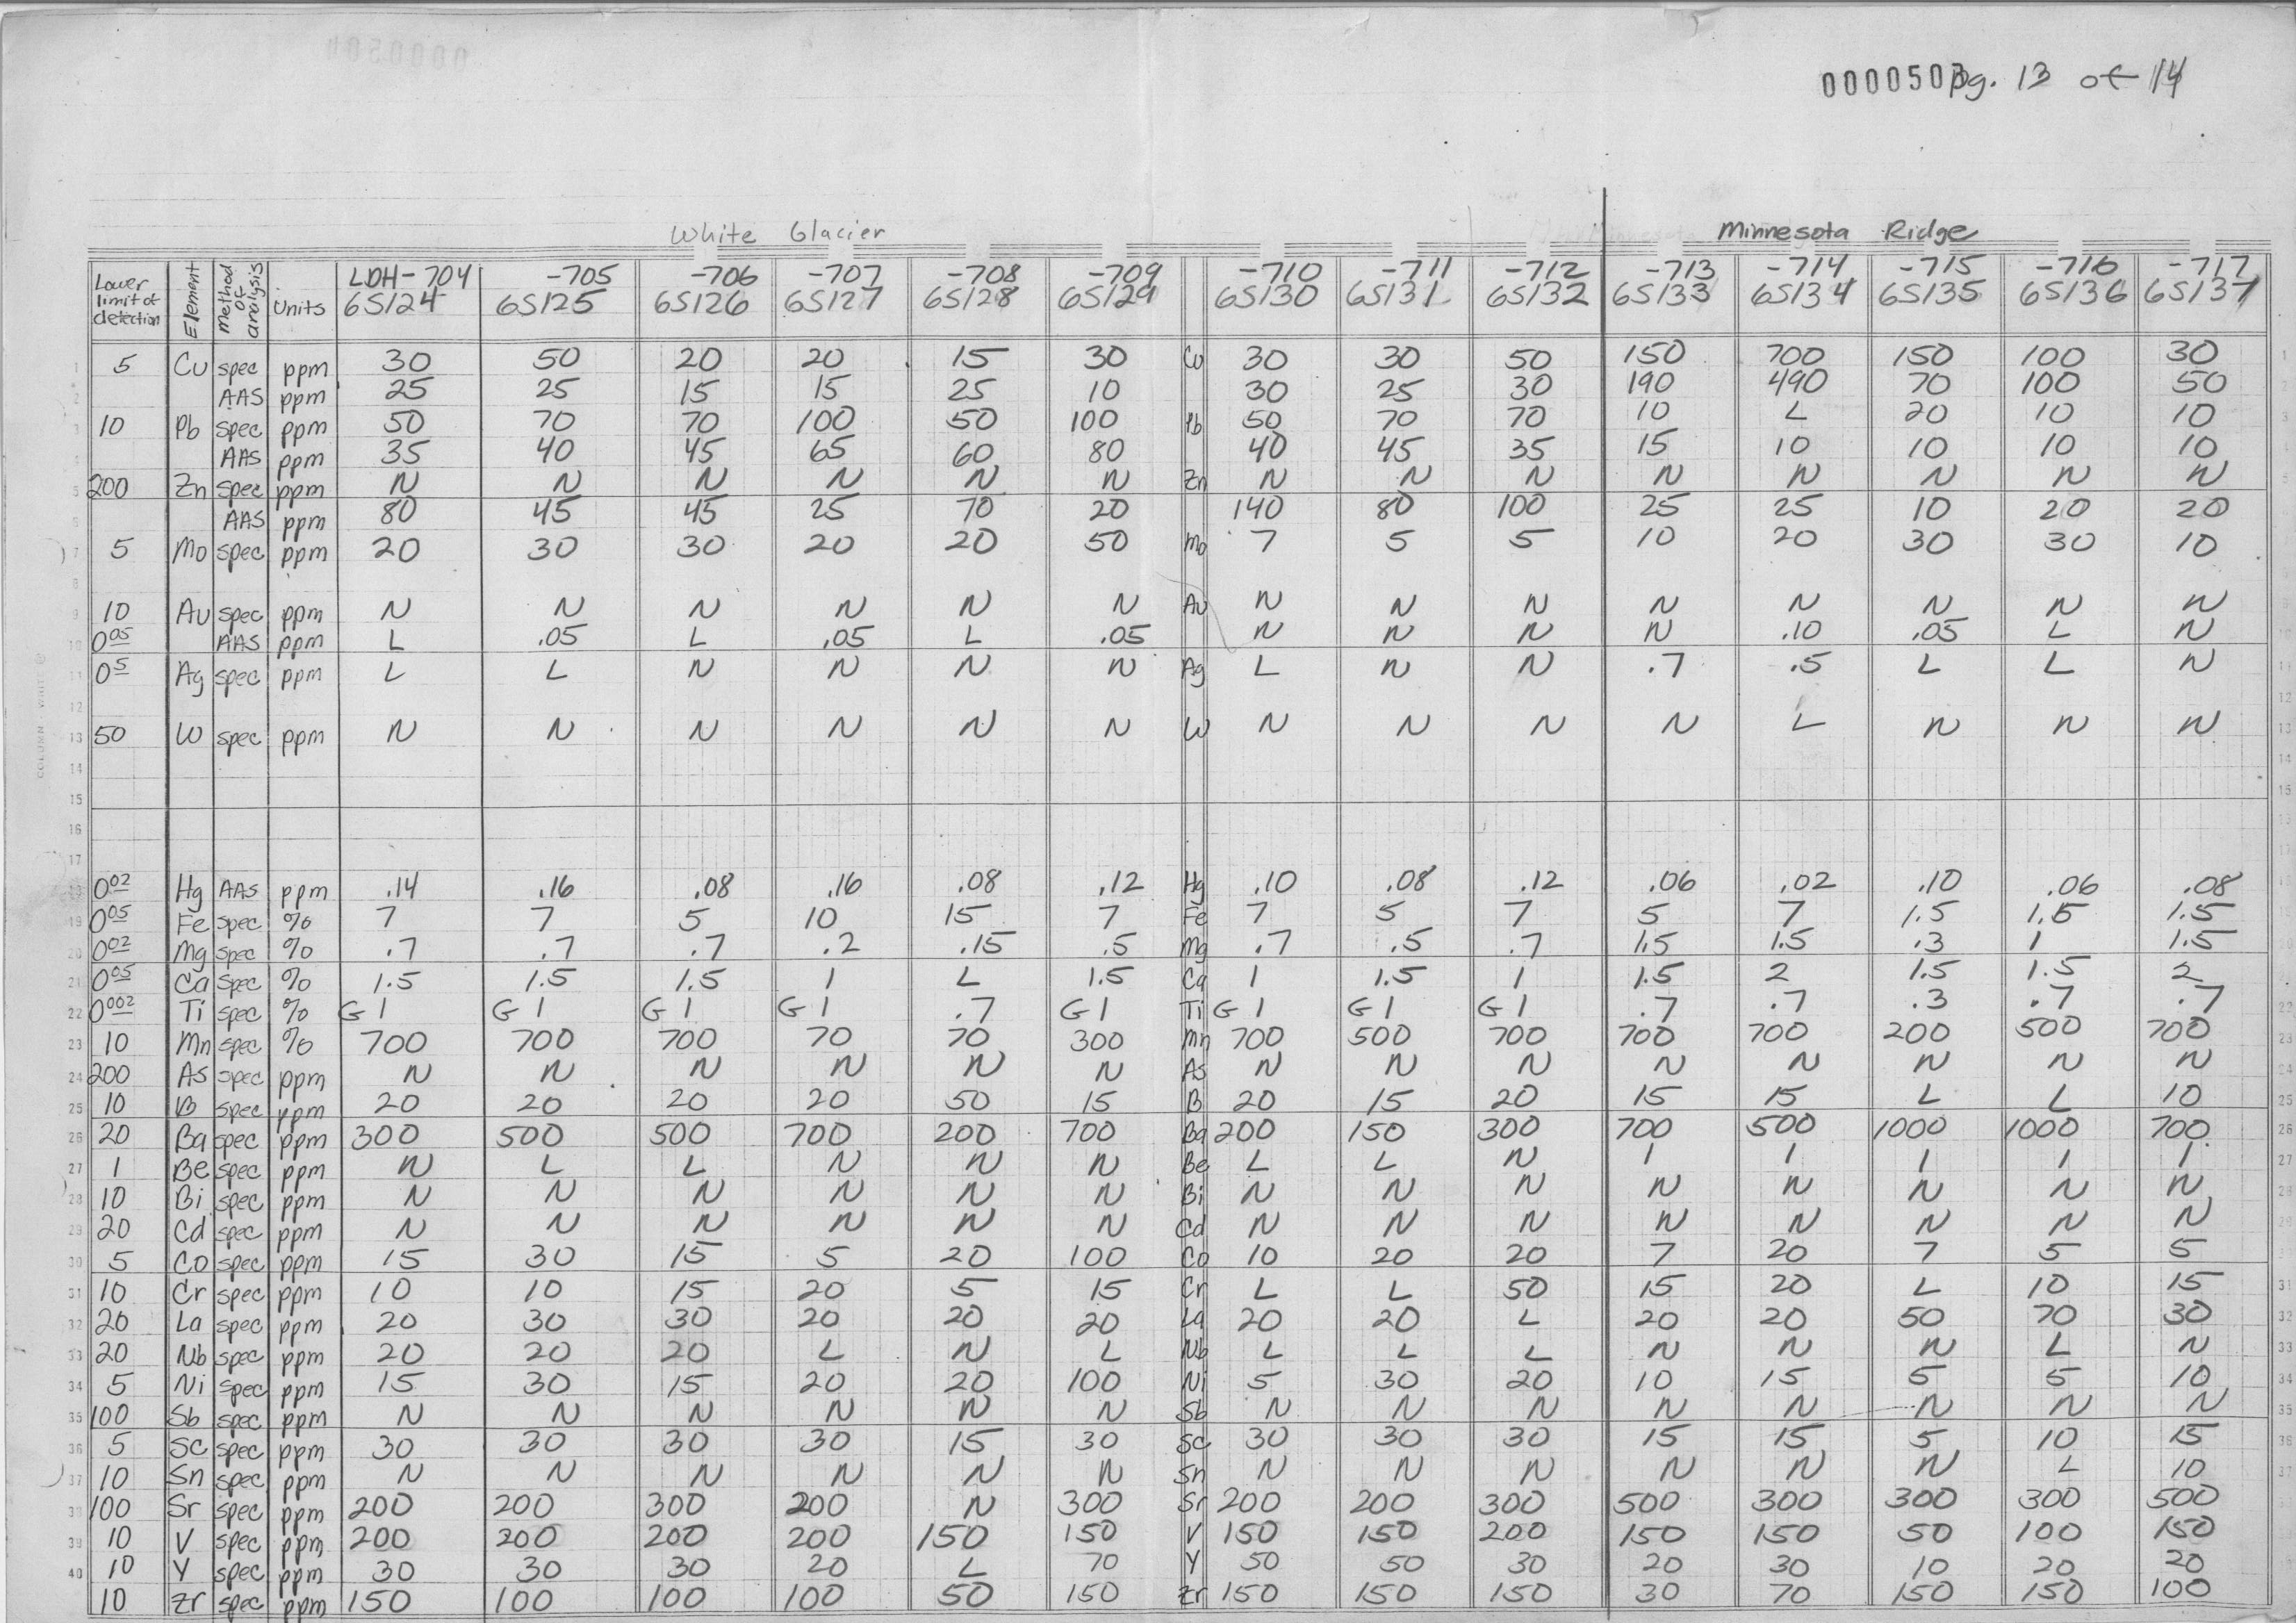 0000503 pg. 13 of 14
White Glacier Minnesota Ridge
Lower limit of detection Element Method of analysis Units LDH-704 -705 -706 -707 -708 -709 -710 -711 -712 -713 -714 -715 -716 -717
6S124 6S125 6S126 6S127 6S128 6S129 6S130 6S131 6S132 6S133 6S134 6S135 6S136 6S137
1 5 Cu spec ppm 30 50 20 20 15 30 Cu 30 30 50 150 700 150 100 30 1
2 AAS ppm 25 25 15 15 25 10 30 25 30 190 490 70 100 50
3 10 Pb spec ppm 50 70 70 100 50 100 Pb 50 70 70 10 L 20 10 10 3
AAS ppm 35 40 45 65 60 80 40 45 35 15 10 10 10 10
5 200 Zn spec ppm N N N N N N Zn N N N N N N N N
6 AAS ppm 80 45 45 25 70 20 140 80 100 25 25 10 20 20
7 5 Mo spec ppm 20 30 30 20 20 50 Mo 7 5 5 10 20 30 30 10
8
9 10 Au spec ppm N N N N N N Au N N N N N N N N
10 0.05 AAS ppm L .05 L .05 L .05 N N N N .10 .05 L N
11 0.5 Ag spec ppm L L N N N N Ag L N N .7 .5 L L N 11
12 12
13 50 W spec ppm N N N N N N W N N N N L N N N 13
14 14
15 15
16
17
18 0.02 Hg AAS ppm .14 .16 .08 .16 .08 .12 Hg .10 .08 .12 .06 .02 .10 .06 .08
19 0.05 Fe spec % 7 7 5 10 15 7 Fe 7 5 7 5 7 1.5 1.5 1.5
20 0.02 Mg spec % .7 .7 .7 .2 .15 .5 Mg .7 .5 .7 1.5 1.5 .3 1 1.5
21 0.05 Ca spec % 1.5 1.5 1.5 1 L 1.5 Ca 1 1.5 1 1.5 2 1.5 1.5 2
22 0.002 Ti spec % G1 G1 G1 G1 .7 G1 Ti G1 G1 G1 .7 .7 .3 .7 .7 22
23 10 Mn spec % 700 700 700 70 70 300 Mn 700 500 700 700 700 200 500 700 23
24 200 As spec ppm N N N N N N As N N N N N N N N 24
25 10 B spec ppm 20 20 20 20 50 15 B 20 15 20 15 15 L L 10 25
26 20 Ba spec ppm 300 500 500 700 200 700 Ba 200 150 300 700 500 1000 1000 700 26
27 1 Be spec ppm N L L N N N Be L L N 1 1 1 1 1 27
28 10 Bi spec ppm N N N N N N Bi N N N N N N N N
29 20 Cd spec ppm N N N N N N Cd N N N N N N N N
30 5 Co spec ppm 15 30 15 5 20 100 Co 10 20 20 7 20 7 5 5
31 10 Cr spec ppm 10 10 15 20 5 15 Cr L L 50 15 20 L 10 15 31
32 20 La spec ppm 20 30 30 20 20 20 La 20 20 L 20 20 50 70 30 32
33 20 Nb spec ppm 20 20 20 L N L Nb L L L N N N L N 33
34 5 Ni spec ppm 15 30 15 20 20 100 Ni 5 30 20 10 15 5 5 10 34
35 100 Sb spec ppm N N N N N N Sb N N N N N N N N 35
36 5 Sc spec ppm 30 30 30 30 15 30 Sc 30 30 30 15 15 5 10 15 36
37 10 Sn spec ppm N N N N N N Sn N N N N N N L 10 37
38 100 Sr spec ppm 200 200 300 200 N 300 Sr 200 200 300 500 300 300 300 500
39 10 V spec ppm 200 200 200 200 150 150 V 150 150 200 150 150 50 100 150
40 10 Y spec ppm 30 30 30 20 L 70 Y 50 50 30 20 30 10 20 20
10 Zr spec ppm 150 100 100 100 50 150 Zr 150 150 150 30 70 150 150 100